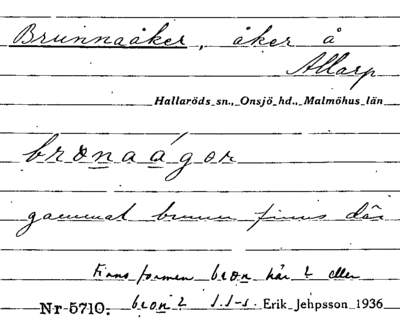 Brunnaåker, åker å
Allarp
Hallaröds sn., Onsjö hd., Malmöhus län
bronaágor
gammal brunn finns där
Finns formen bron här? eller
Nr 5710. bron? J.I-s. Erik Jehpsson 1936